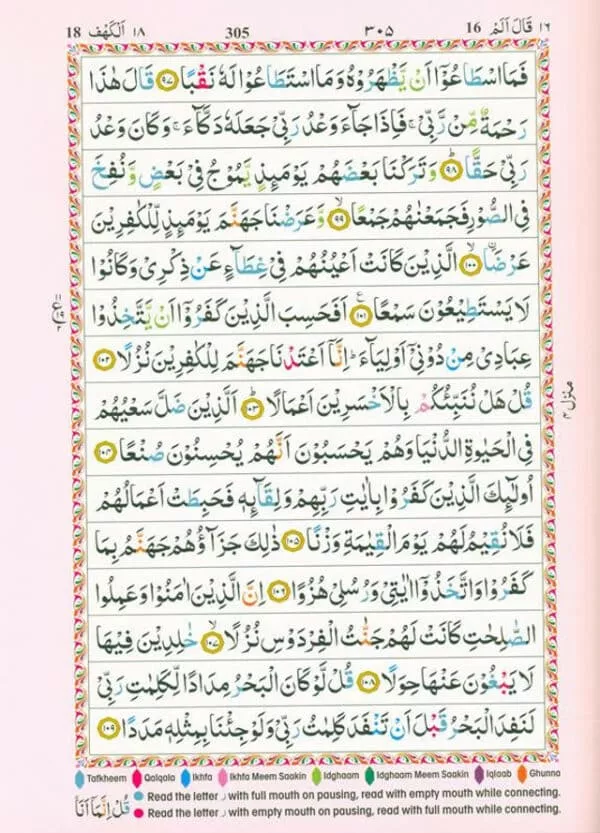 18 اَلْكَهْف ١٨ 305 ٣٠٥ 16 قَالَ اَلَمْ ١٦
فَمَا اسْطَاعُوْۤا اَنْ يَّظْهَرُوْهُ وَمَا اسْتَطَاعُوْا لَهٗ نَقْبًا ﴿٩٧﴾ قَالَ هٰذَا
رَحْمَةٌ مِّنْ رَّبِّيْ ۚ فَاِذَا جَآءَ وَعْدُ رَبِّيْ جَعَلَهٗ دَكَّآءَ ۚ وَكَانَ وَعْدُ
رَبِّيْ حَقًّا ﴿٩٨﴾ ؕ وَتَرَكْنَا بَعْضَهُمْ يَوْمَئِذٍ يَّمُوْجُ فِيْ بَعْضٍ وَّنُفِخَ
فِي الصُّوْرِ فَجَمَعْنٰهُمْ جَمْعًا ﴿٩٩﴾ ۙ وَّعَرَضْنَا جَهَنَّمَ يَوْمَئِذٍ لِّلْكٰفِرِيْنَ
عَرْضَا ﴿١٠٠﴾ ۙ الَّذِيْنَ كَانَتْ اَعْيُنُهُمْ فِيْ غِطَآءٍ عَنْ ذِكْرِيْ وَكَانُوْا
لَا يَسْتَطِيْعُوْنَ سَمْعًا ﴿١٠١﴾ ع اَفَحَسِبَ الَّذِيْنَ كَفَرُوْۤا اَنْ يَّتَّخِذُوْا
ع ١١ ١٩ ٢
عِبَادِيْ مِنْ دُوْنِيْۤ اَوْلِيَآءَ ؕ اِنَّاۤ اَعْتَدْنَا جَهَنَّمَ لِلْكٰفِرِيْنَ نُزُلًا ﴿١٠٢﴾
قُلْ هَلْ نُنَبِّئُكُمْ بِالْاَخْسَرِيْنَ اَعْمَالًا ﴿١٠٣﴾ ؕ اَلَّذِيْنَ ضَلَّ سَعْيُهُمْ
منزل ٤
فِي الْحَيٰوةِ الدُّنْيَا وَهُمْ يَحْسَبُوْنَ اَنَّهُمْ يُحْسِنُوْنَ صُنْعًا ﴿١٠٤﴾
اُولٰٓئِكَ الَّذِيْنَ كَفَرُوْا بِاٰيٰتِ رَبِّهِمْ وَلِقَآئِهٖ فَحَبِطَتْ اَعْمَالُهُمْ
فَلَا نُقِيْمُ لَهُمْ يَوْمَ الْقِيٰمَةِ وَزْنًا ﴿١٠٥﴾ ذٰلِكَ جَزَآؤُهُمْ جَهَنَّمُ بِمَا
كَفَرُوْا وَاتَّخَذُوْۤا اٰيٰتِيْ وَرُسُلِيْ هُزُوًا ﴿١٠٦﴾ اِنَّ الَّذِيْنَ اٰمَنُوْا وَعَمِلُوا
الصّٰلِحٰتِ كَانَتْ لَهُمْ جَنّٰتُ الْفِرْدَوْسِ نُزُلًا ﴿١٠٧﴾ ۙ خٰلِدِيْنَ فِيْهَا
لَا يَبْغُوْنَ عَنْهَا حِوَلًا ﴿١٠٨﴾ قُلْ لَّوْ كَانَ الْبَحْرُ مِدَادًا لِّكَلِمٰتِ رَبِّيْ
لَنَفِدَ الْبَحْرُ قَبْلَ اَنْ تَنْفَدَ كَلِمٰتُ رَبِّيْ وَلَوْ جِئْنَا بِمِثْلِهٖ مَدَدًا ﴿١٠٩﴾
Tafkheem Qalqala Ikhfa Ikhfa Meem Saakin Idghaam Idghaam Meem Saakin Iqlaab Ghunna
قُلْ اِنَّمَاۤ اَنَا
Read the letter ر with full mouth on pausing, read with empty mouth while connecting.
Read the letter ر with empty mouth on pausing, read with full mouth while connecting.